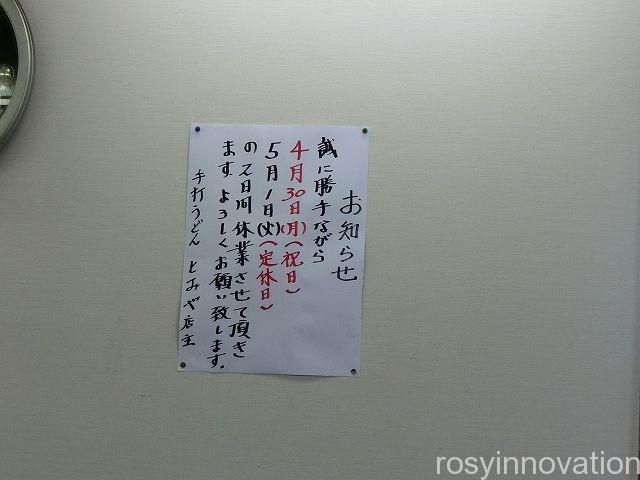 お知らせ
誠に勝手ながら
4月30日(月)(祝日)
5月1日(火)(定休日)
の2日間休業させて頂き
ます。よろしくお願い致します。
手打うどん とみや店主
rosyinnovation